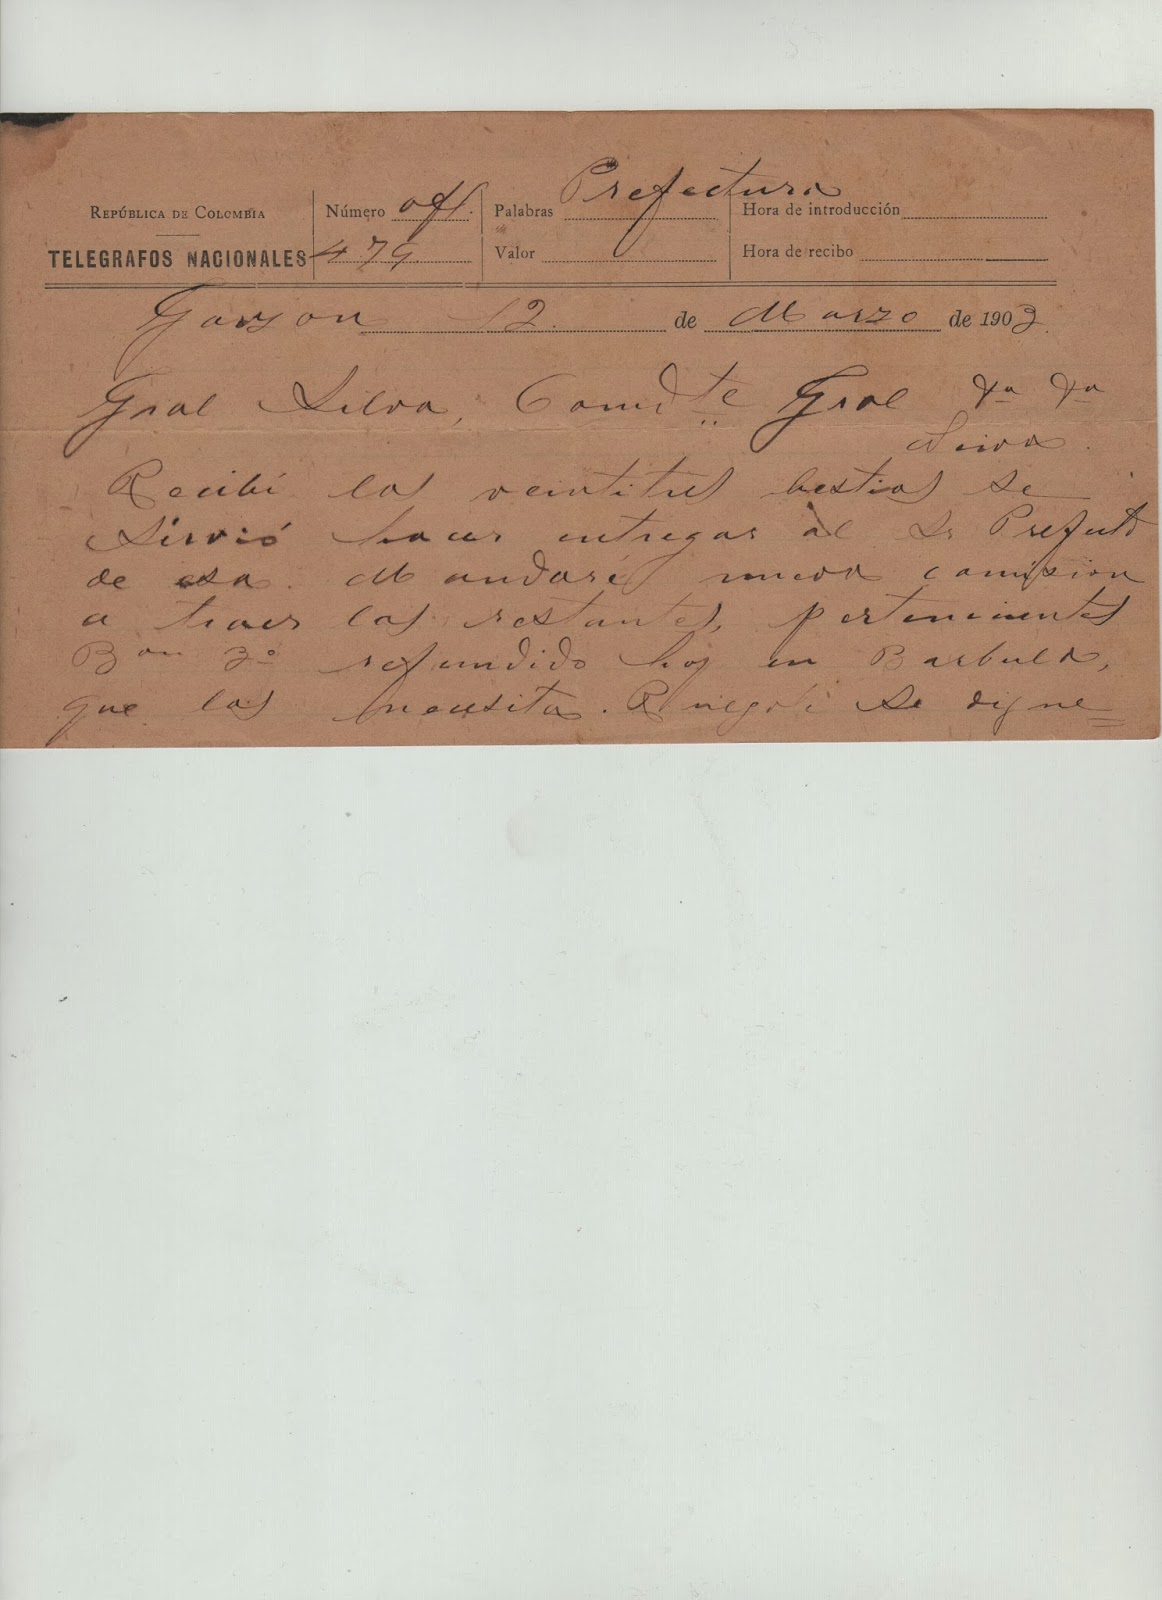 REPÚBLICA DE COLOMBIA
TELEGRAFOS NACIONALES
Número off.
479
Palabras Prefectura
Valor
Hora de introducción
Hora de recibo
Garzon 12 de Marzo de 1903
Gral Silva, Comdte Gral
Neiva.
Recibí las veintitres bestias se
sirvió hacer entregar al Sr Prefecto
de esa. Mandaré nueva comision
a traer las restantes, pertenecientes
Bon 3º refundido hoy en Barbula,
que las necesita. Ruegole se digne